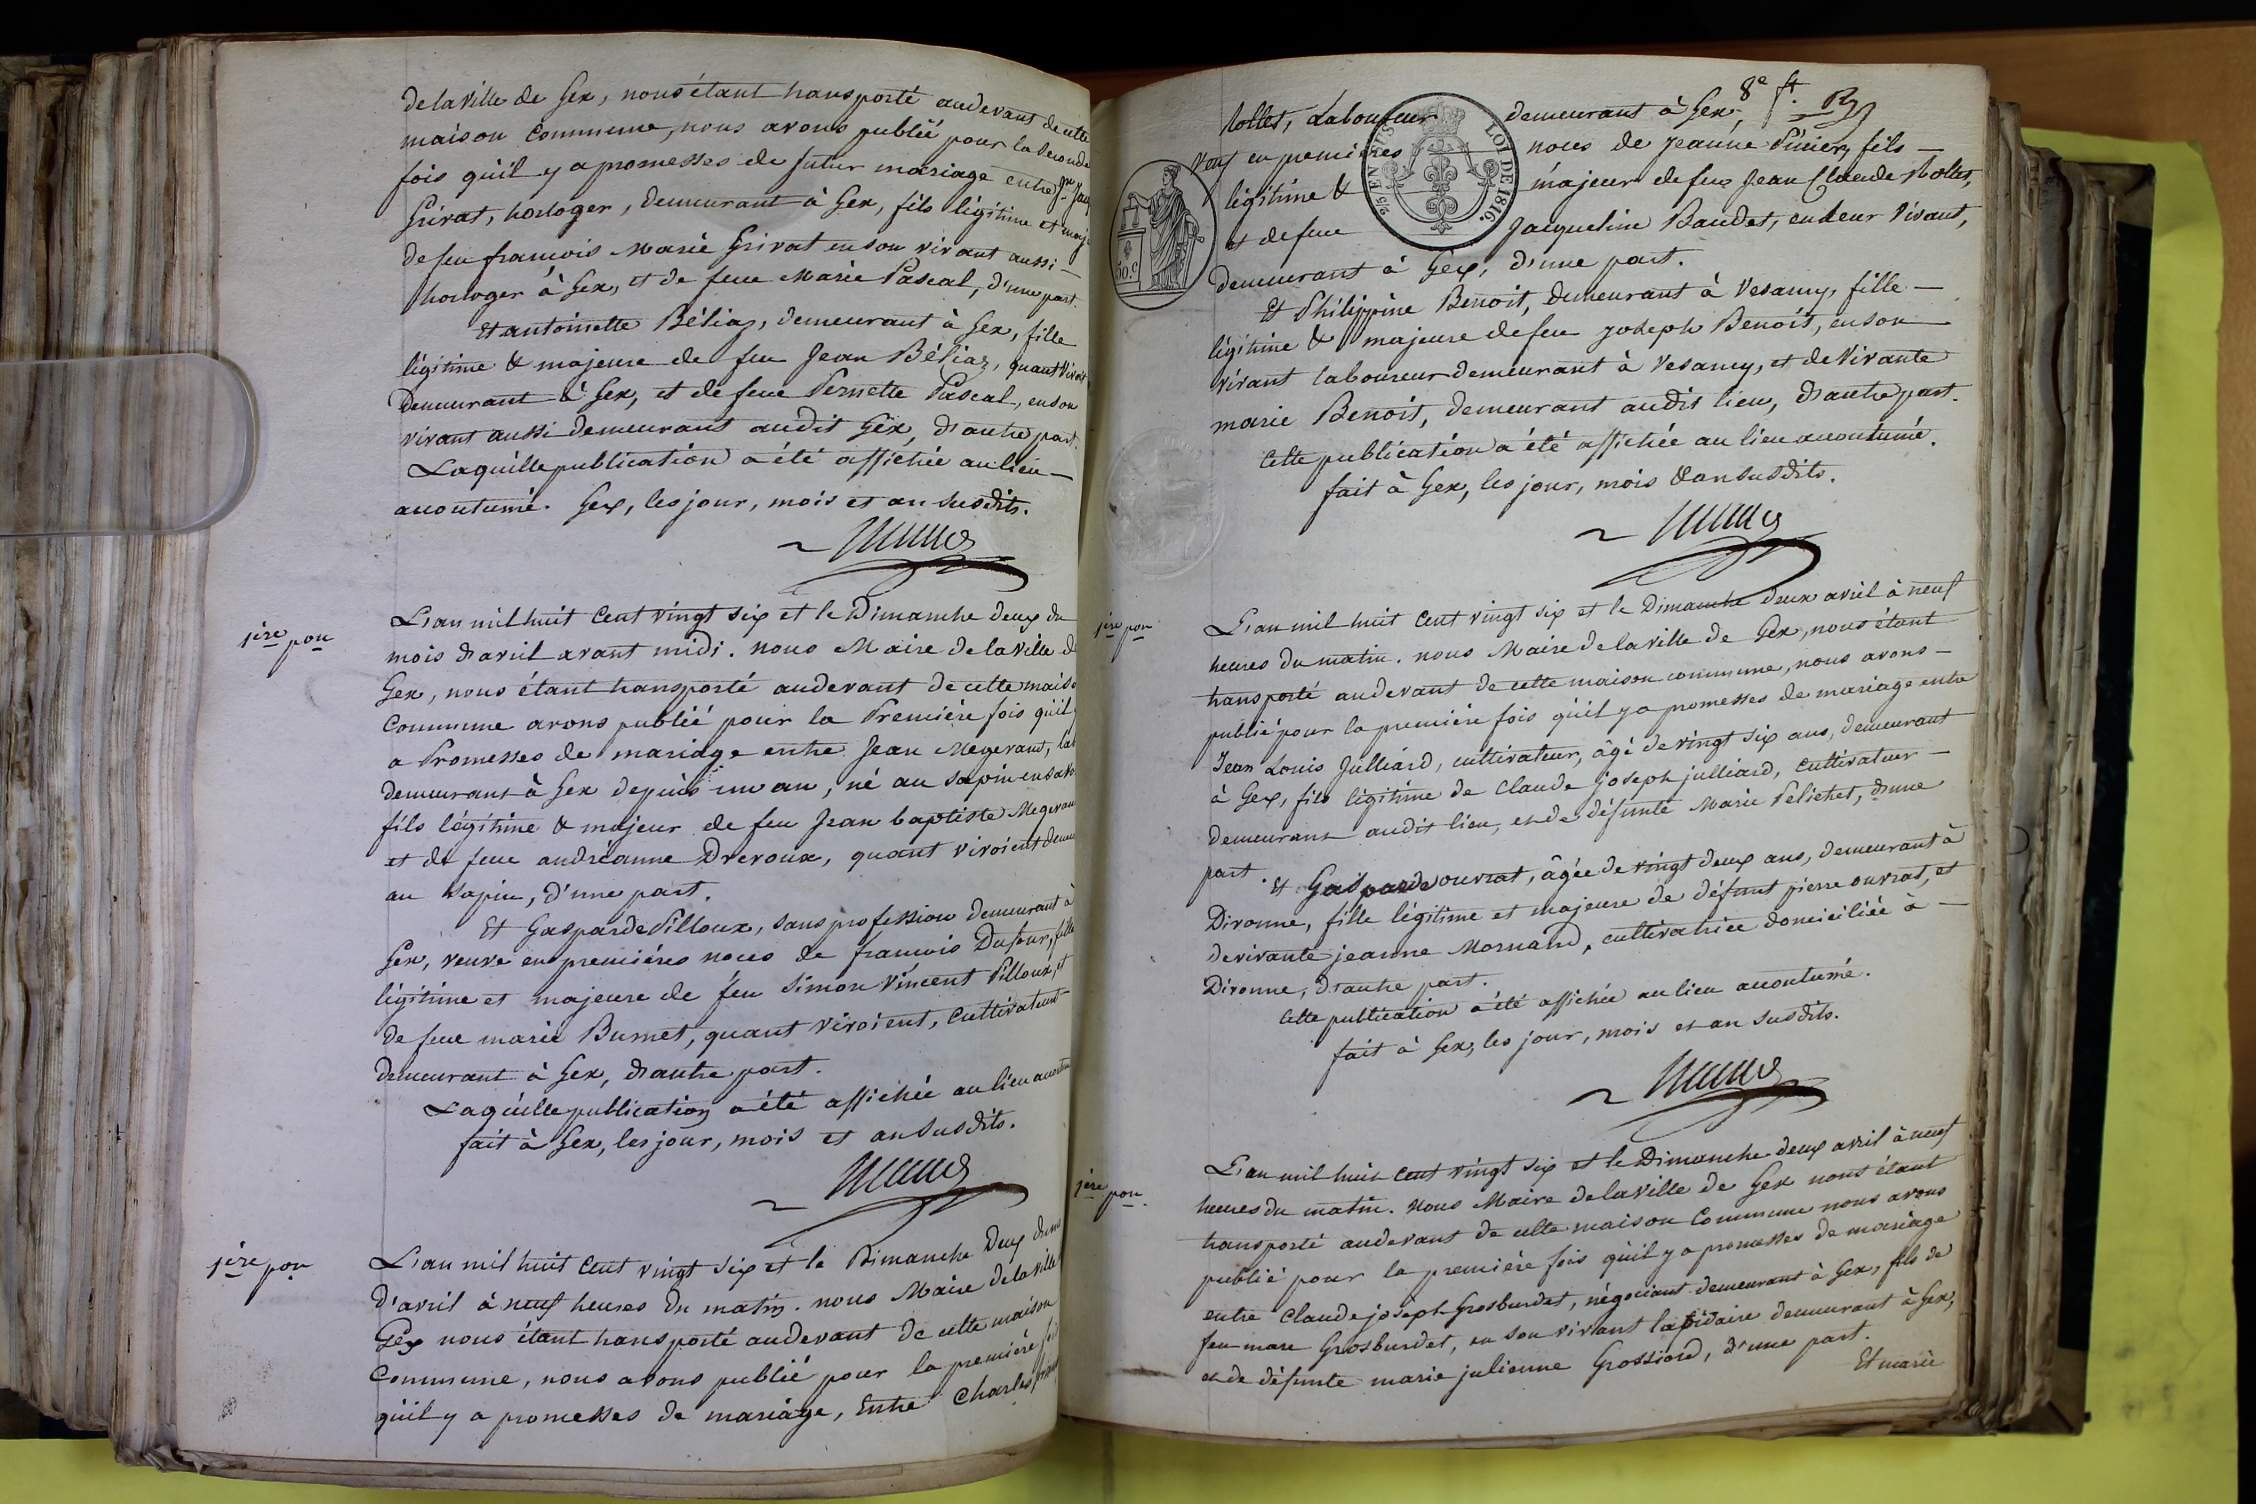 de la ville de Gex, nous étant transporté audevant de cette
maison Commune, nous avons publié pour la seconde
fois qu'il y a promesses de futur mariage entre
Grivat, horloger, demeurant à Gex, fils légitime et
de feu francois Marie Grivat en son vivant aussi —
horloger à Gex, et de feue Marie Pascal, d'une part.
Et antoinette Béliaz, demeurant à Gex, fille
légitime & majeure de feu Jean Béliaz, quant vivoit
Demeurant à Gex, et de feue Pernette Pascal, en son
vivant aussi demeurant audit Gex, d'autre part.
Laquelle publication a été affichée au lieu —
accoutumé. Gex, les jour, mois et an susdits.
1ère pon
L'an mil huit Cent vingt six et le Dimanche deux du
mois d'avril avant midi. nous Maire de la ville d
Gex, nous étant transporté audevant de cette mais
Commune avons publié pour la Première fois qu'il
a Promesses de mariage entre Jean Megevand, lab
demeurant à Gex depuis un an, né au sapin en savo
fils légitime & majeur de feu Jean baptiste Megevan
et de feue andréanne Dreroux, quant vivoient demeu
au sapin, d'une part.
Et Gasparde Pilloux, sans profession demeurant à
Gex, veuve en premières noces de francois Dufour, fille
légitime et majeure de feu Simon Vincent Pilloux, et
de feue marie Burnet, quant vivoient, Cultivateurs
demeurant à Gex, d'autre part.
Laquelle publication a été affichée au lieu accoutu
fait à Gex, les jour, mois et an susdits.
1ère pon
L'an mil huit Cent vingt six et le Dimanche Deux du mo
d'avril à neuf heures du matin. nous Maire de la ville
Gex nous étant transporté audevant de cette maison
Commune, nous avons publié pour la première foi
qu'il y a promesses de mariage, Entre Charles
8e ft.
Rolles, Laboureur demeurant à Gex,
Veuf en premières noces de Jeanne Pinier, fils —
légitime & majeur de feu Jean Claude Rolles,
et de feue Jacqueline Baudet, en leur Vivant,
demeurant à Gex, d'une part.
2/5 EN SUS
LOI DE 1816.
50.c
Et Philippine Benoit, demeurant à Vesancy, fille —
légitime & majeure de feu Joseph Benoit, en son
vivant laboureur demeurant à Vesancy, et de Vivante
marie Benoit, demeurant audit lieu, d'autre part.
Cette publication a été affichée au lieu accoutumé.
fait à Gex, les jour, mois & an susdits.
1ère pon
L'an mil huit Cent vingt six et le Dimanche deux avril à neuf
heures du matin. nous Maire de la ville de Gex, nous étant
transporté audevant de cette maison commune, nous avons —
publié pour la première fois qu'il y a promesses de mariage entre
Jean Louis Julliard, cultivateur, âgé de vingt six ans, demeurant
à Gex, fils légitime de Claude joseph julliard, Cultivateur —
demeurant audit lieu, et de défunte Marie Pelichet, d'une
part. Et Gasparde ouvrat, âgée de vingt deux ans, demeurant à
Divonne, fille légitime et majeure de défunt pierre ouvrat, et
de vivante jeanne Mornand, cultivatrice domiciliée à —
Divonne, d'autre part.
Cette publication a été affichée au lieu accoutumé.
fait à Gex, les jour, mois et an susdits.
1ère pon
L'an mil huit cent vingt six et le Dimanche deux avril à neuf
heures du matin. Nous Maire de la ville de Gex nous étant
transporté audevant de cette maison Commune nous avons
publié pour la première fois qu'il y a promesses de mariage
entre Claude joseph Grosburdet, négociant demeurant à Gex, fils de
feu marc Grosburdet, en son vivant lapidaire demeurant à Gex,
et de défunte marie julienne Grossiord, d'une part.
Et marie